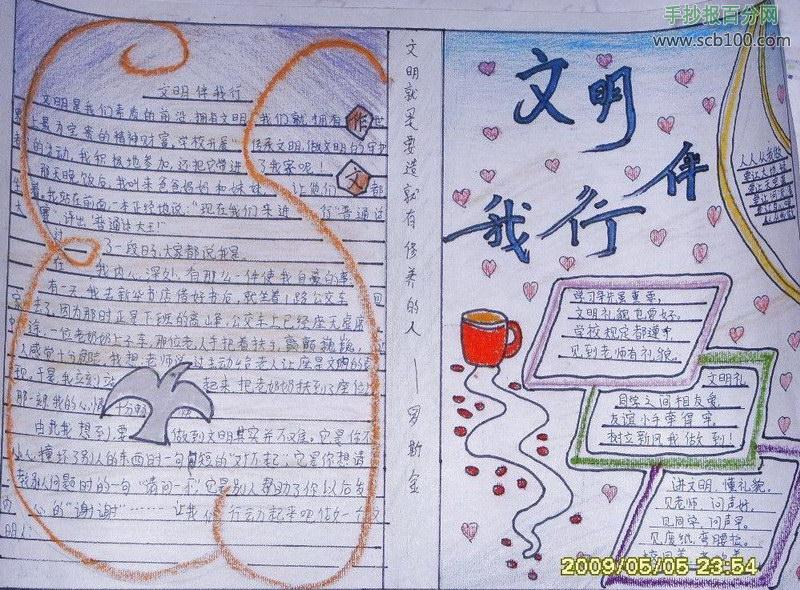 手抄报百分网
www.scb100.com
文明伴我行
文明是我们素质的前沿,拥有文明,我们就拥有
作
文
上最为宝贵的精神财富。学校开展“
的活动,我积极地参加,还把它带进了我家呢!
那天晚饭后,我叫来爸爸妈妈和妹妹,让他们
我站在前面一本正经地说:“现在我们来进行“普通话
大赛,评出“普通话大王!”
了一段日子,大家都说我是
我内心深处,有那么一件使我自豪的事
有一天,我去新华书店借好书后,就坐着1路公交车
因为那时正是下班的高峰,公交车上已经座无虚席
一位老奶奶上了车,那位老人手把着扶手,颤颤巍巍,
人感觉十分危险。我想:老师说过主动给老人让座是文明的表
现,于是,我立刻 起来,把老奶奶扶到了座位
那一刻,我的心情十分
由此我想到要 做到文明其实并不难,它是你不
小心撞坏了别人的东西时一句 短的“对不起”;它是你想请
教别人问题时的一句“请问一下”;它是别人帮助了你以后发
心的“谢谢”……让我 行动起来吧,做一个
明人!
文明就是要造就有修养的人——罗斯金
文明
伴
我行
学习争先最重要,
文明礼貌也要好。
学校规定都遵守,
见到老师有礼貌。
文明礼
同学之间相友爱,
友谊小手牵得牢,
树立新风我做到!
讲文明,懂礼貌,
见老师,问声好。
见同学,问声早。
见废纸,弯腰捡。
2009/05/05 23:54